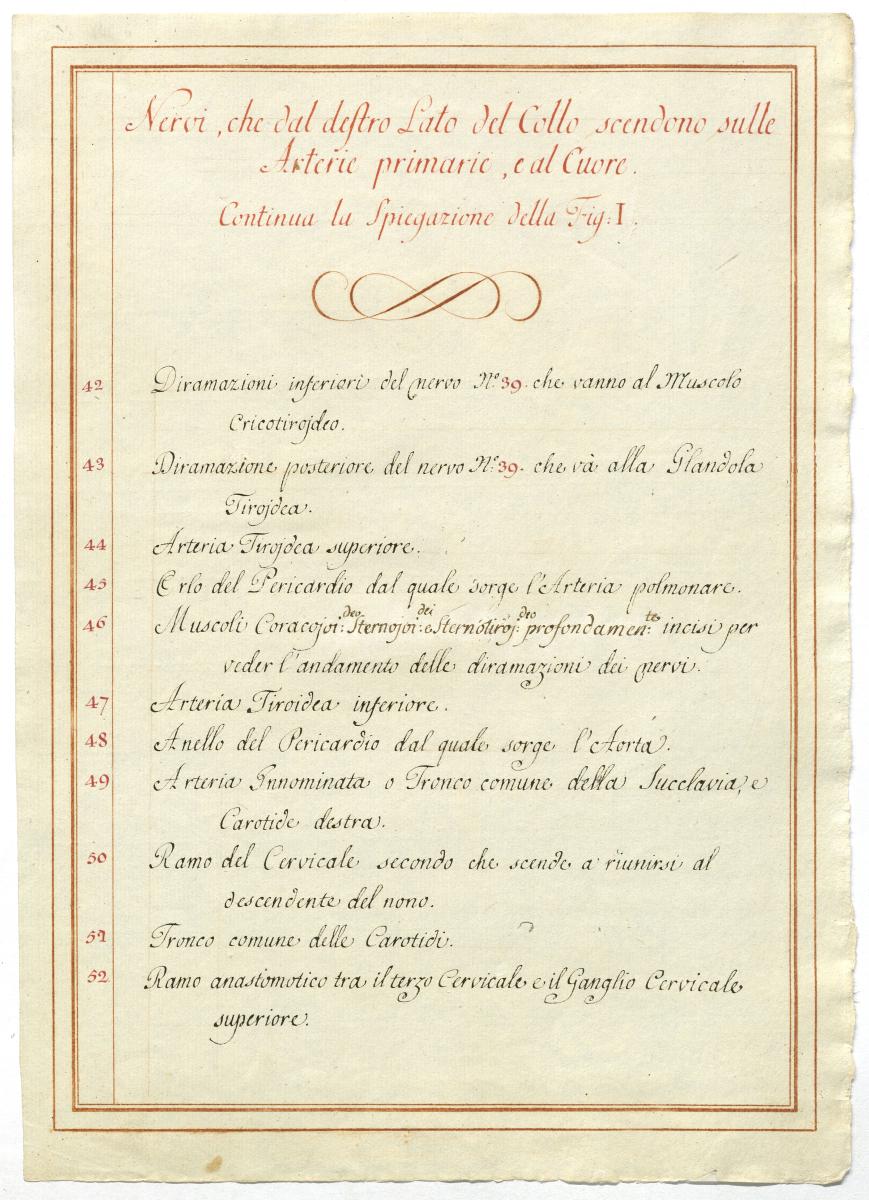 Nervi, che dal destro Lato del Collo scendono sulle
Arterie primarie, e al Cuore.
Continua la Spiegazione della Fig: I.
42 Diramazioni inferiori del nervo N.º 39. che vanno al Muscolo
Cricotirojdeo.
43 Diramazione posteriore del nervo N.º 39. che và alla Glandola
Tirojdea.
44 Arteria Tirojdea superiore.
45 Orlo del Pericardio dal quale sorge l'Arteria polmonare.
46 Muscoli Coracojoi:deo Sternojoi:dei e Sternotiroj:deo profondamen:te incisi per
veder l'andamento delle diramazioni dei nervi.
47 Arteria Tiroidea inferiore.
48 Anello del Pericardio dal quale sorge l'Aorta.
49 Arteria Innominata o Tronco comune della Succlavia, e
Carotide destra.
50 Ramo del Cervicale secondo che scende a riunirsi al
descendente del nono.
51 Tronco comune delle Carotidi.
52 Ramo anastomotico tra il terzo Cervicale e il Ganglio Cervicale
superiore.